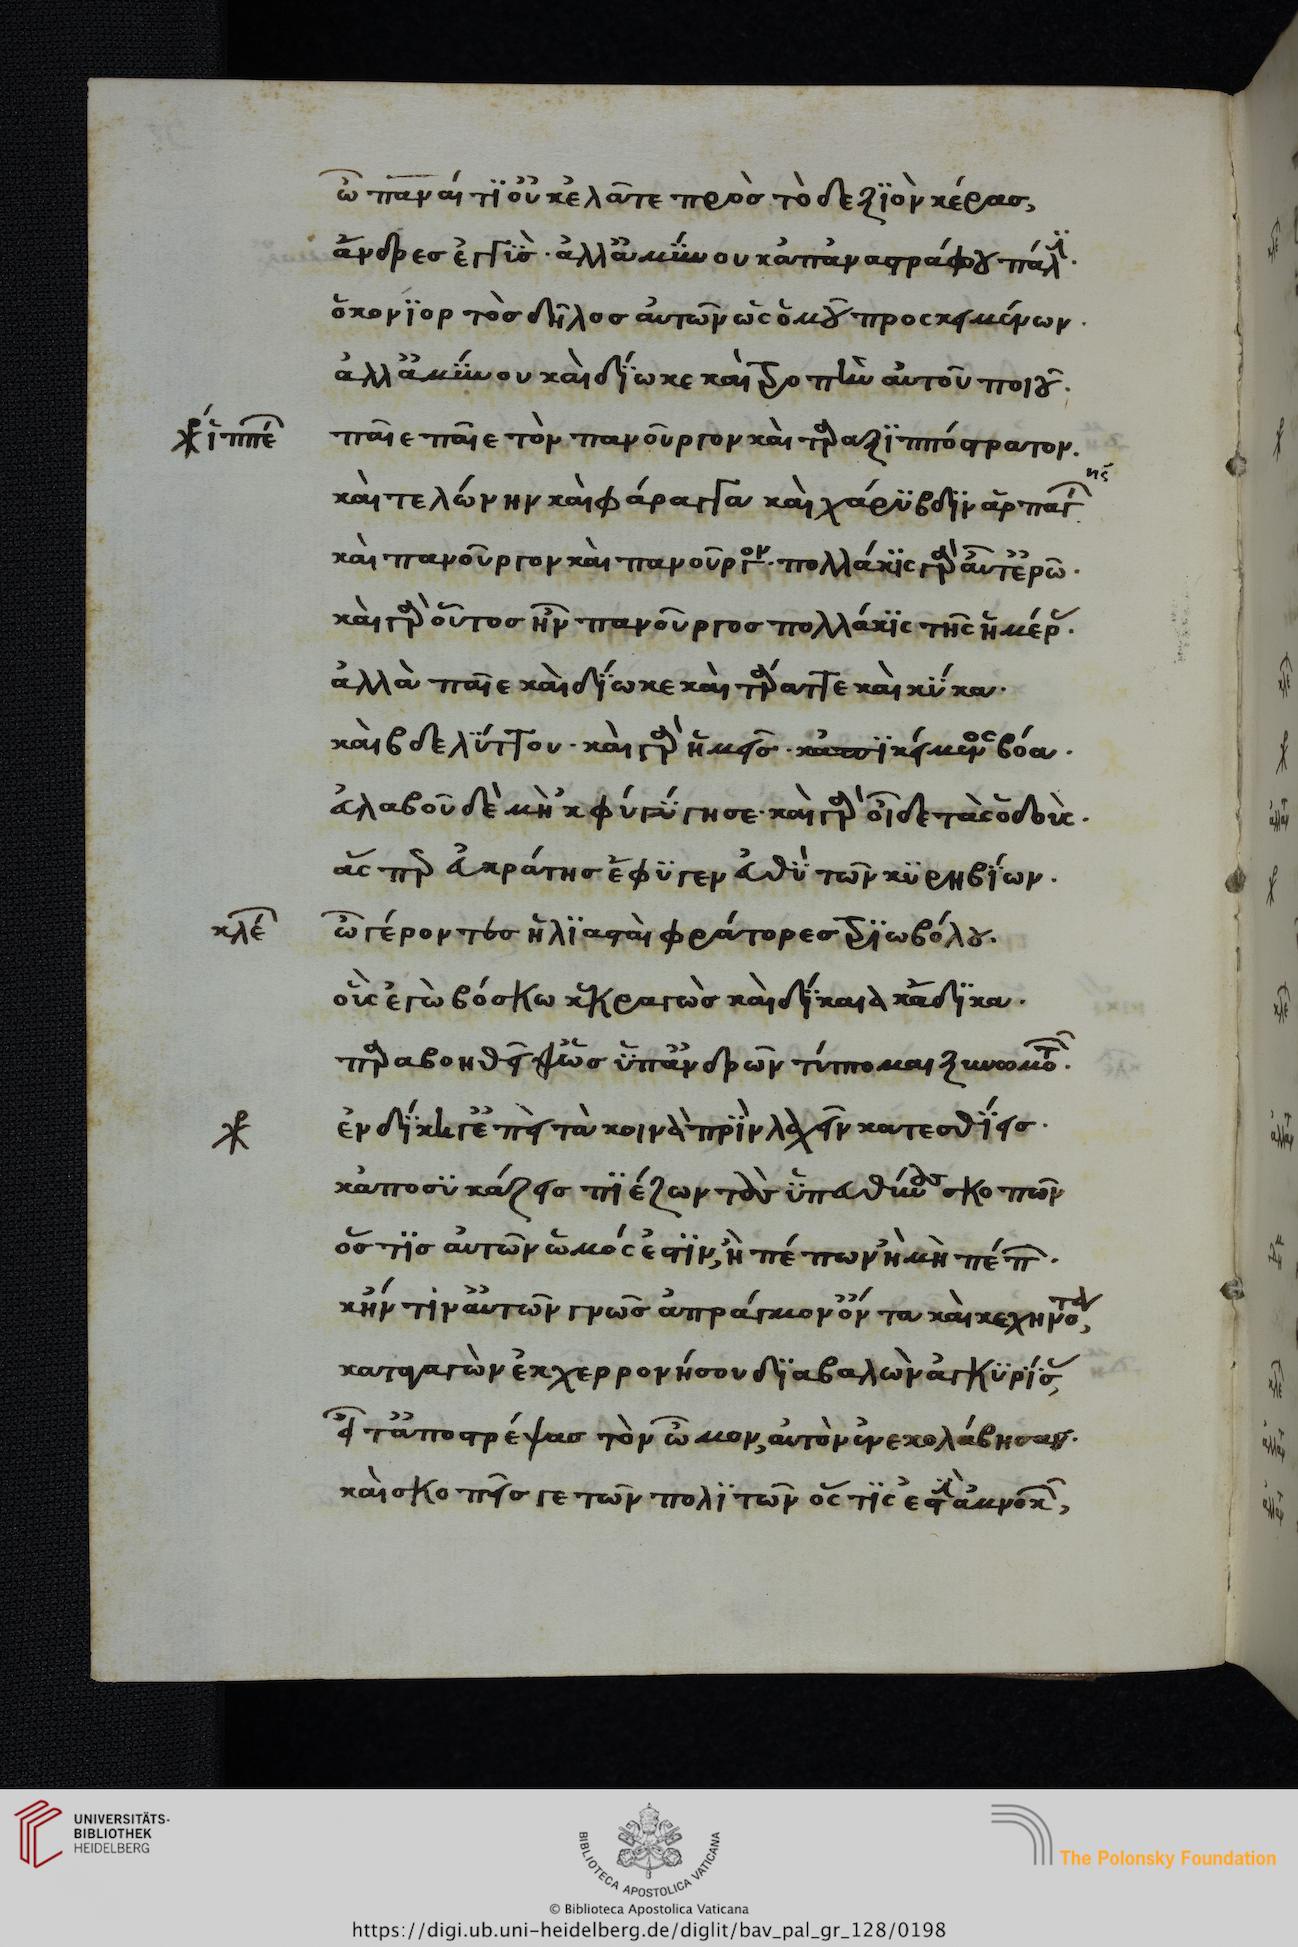 ὦ παναί τι οὐκ ἐλᾶτε πρὸσ τὸ δεξϊὸν κέρασ,
ἄνδρεσ ἐγγὺσ · ἀλλ' ἀμύνου κἀπαναστράφου πάλϊ ·
ὁ κονϊορτὸσ δῆλοσ αὐτῶν ὡς ὁμοῦ προσκειμένων ·
ἀλλ' ἀμύνου καὶ δίωκε καὶ τροπὴν αὐτοῦ ποιοῦ ·
χ ἱππέ παῖε παῖε τὸν πανοῦργον καὶ ταραξϊππόστρατον ·
καὶ τελώνην καὶ φάραγγα καὶ χάρυβδϊν ἁρπαγῆς
καὶ πανοῦργον καὶ πανοῦργον · πολλάκϊς γὰρ αὔτ' ἐρῶ ·
καὶ γὰρ οὗτοσ ἦν πανοῦργοσ πολλάκϊς τῆς ἡμέρας ·
ἀλλὰ παῖε καὶ δίωκε καὶ τάραττε καὶ κύκα ·
καὶ βδελύττου · καὶ γὰρ ἡμεῖσ · κἀπϊκείμενος βόα ·
εὐλαβοῦ δὲ μὴ 'κφύγῃ σε · καὶ γὰρ οἶδε τὰς ὁδοὺς ·
ἅς περ εὐκράτησ ἔφυγεν εὐθὺ τῶν κυρηβίων ·
κλέ ὦ γέροντεσ ἡλϊασταὶ φράτορεσ τρϊωβόλου ·
οὓς ἐγὼ βόσκω κεκραγὼσ καὶ δίκαια κἄδϊκα ·
παραβοηθεῖθ' ὡσ ὑπ' ἀνδρῶν τύπτομαι ξυνωμοτῶν ·
χ ἐν δίκῃ γ' ἐπεὶ τὰ κοινὰ πρὶν λαχεῖν κατεσθίεισ ·
κἀποσυκάζεισ πϊέζων τοὺσ ὑπευθύνουσ σκοπῶν
ὅστϊσ αὐτῶν ὠμός ἐστϊν, ἢ πέπων ἢ μὴ πέπων ·
κἤν τιν' αὐτῶν γνῶσ ἀπράγμον' ὄντα καὶ κεχηνότα,
καταγαγὼν ἐκ χερρονήσου δϊαβαλὼν ἀγκυρίσας,
εἶτ' ἀποστρέψασ τὸν ὦμον, αὐτὸν ἐνεκολάβησασ ·
καὶ σκοπεῖσ γε τῶν πολϊτῶν ὅς τϊς ἐστϊν ἀμνοκῶν,
UNIVERSITÄTS-
BIBLIOTHEK
HEIDELBERG
BIBLIOTECA APOSTOLICA VATICANA
The Polonsky Foundation
© Biblioteca Apostolica Vaticana
https://digi.ub.uni-heidelberg.de/diglit/bav_pal_gr_128/0198